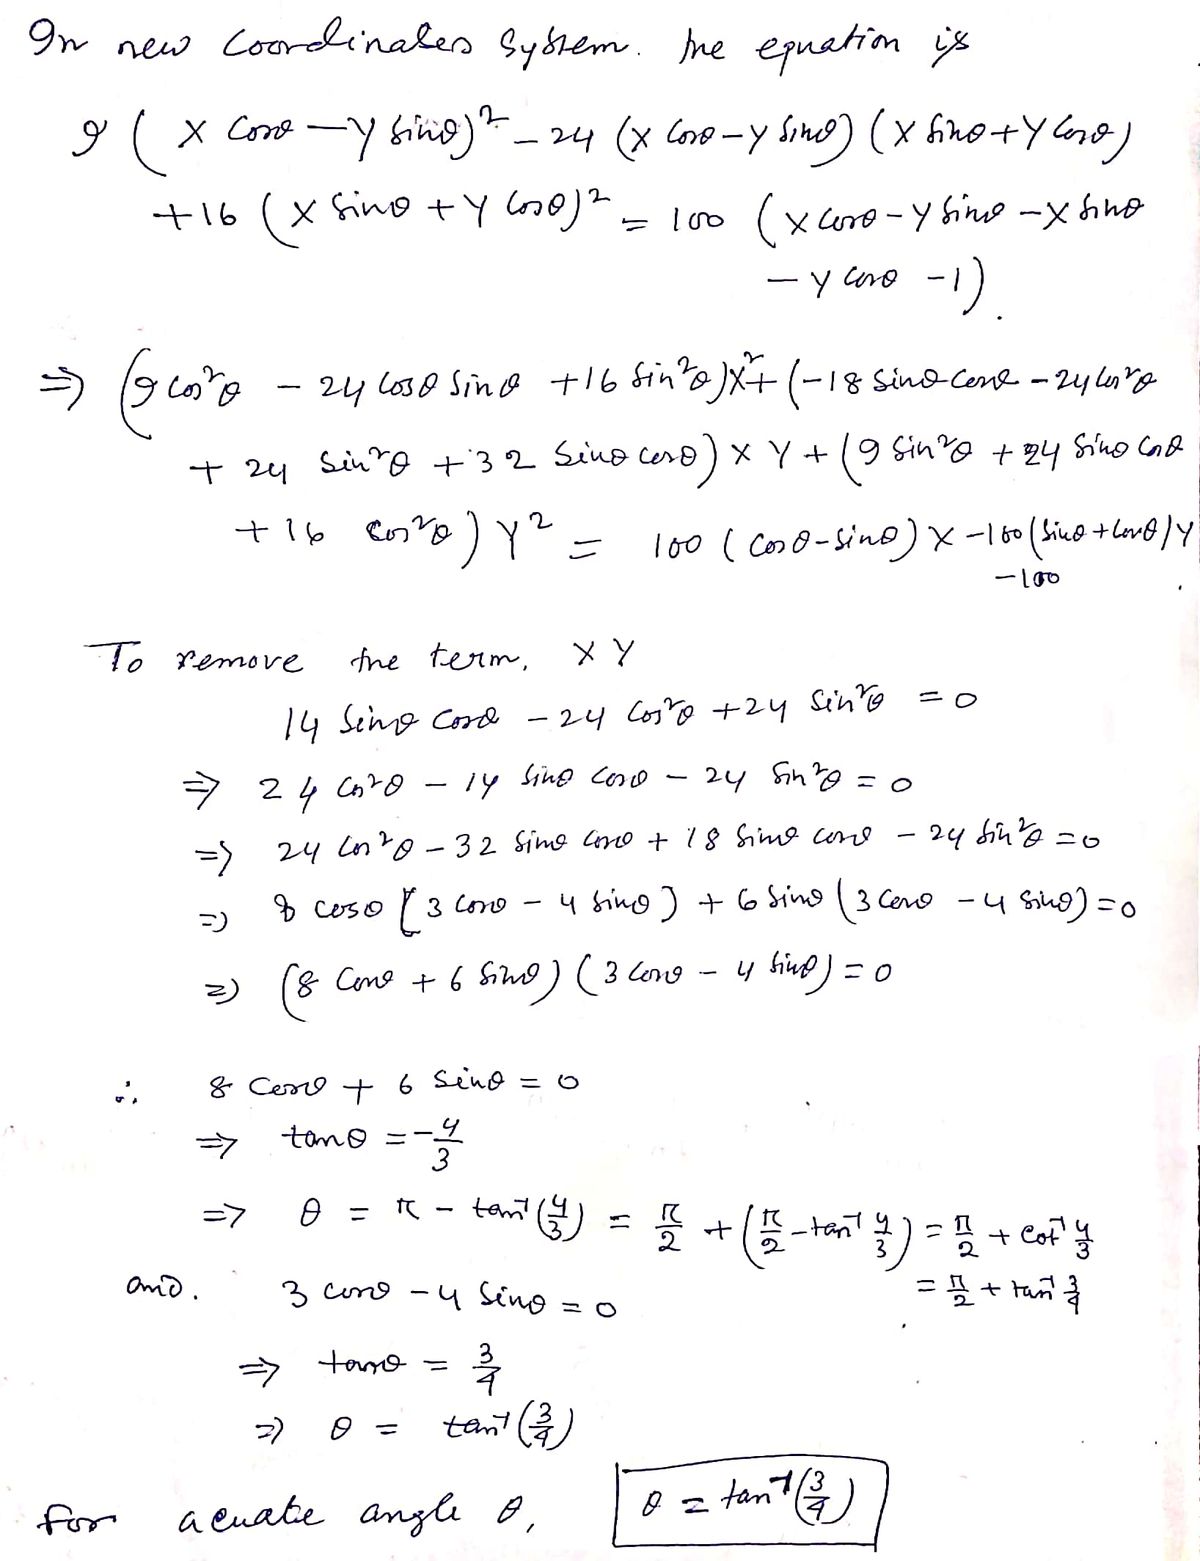 In new coordinates system. the equation is
9 ( X cosθ - Y sinθ)² - 24 (X cosθ - Y sinθ) (X sinθ + Y cosθ)
+16 (X sinθ + Y cosθ)² = 100 (X cosθ - Y sinθ - X sinθ
- Y cosθ - 1).
⇒ (9 cos²θ - 24 cosθ sinθ + 16 sin²θ)X² + (-18 sinθ cosθ - 24 cos²θ
+ 24 sin²θ + 32 sinθ cosθ) X Y + (9 sin²θ + 24 sinθ cosθ
+ 16 cos²θ) Y² = 100 (cosθ - sinθ) X - 100 (sinθ + cosθ) Y
- 100
To remove the term, X Y
14 sinθ cosθ - 24 cos²θ + 24 sin²θ = 0
⇒ 24 cos²θ - 14 sinθ cosθ - 24 sin²θ = 0
⇒ 24 cos²θ - 32 sinθ cosθ + 18 sinθ cosθ - 24 sin²θ = 0
⇒ 8 cosθ [3 cosθ - 4 sinθ) + 6 sinθ (3 cosθ - 4 sinθ) = 0
⇒ (8 cosθ + 6 sinθ) (3 cosθ - 4 sinθ) = 0
∴ 8 cosθ + 6 sinθ = 0
⇒ tanθ = -4/3
⇒ θ = π - tan⁻¹(4/3) = π/2 + (π/2 - tan⁻¹ 4/3) = π/2 + cot⁻¹ 4/3
= π/2 + tan⁻¹ 3/4
and. 3 cosθ - 4 sinθ = 0
⇒ tanθ = 3/4
⇒ θ = tan⁻¹(3/4)
for acuate angle θ, θ = tan⁻¹(3/4)